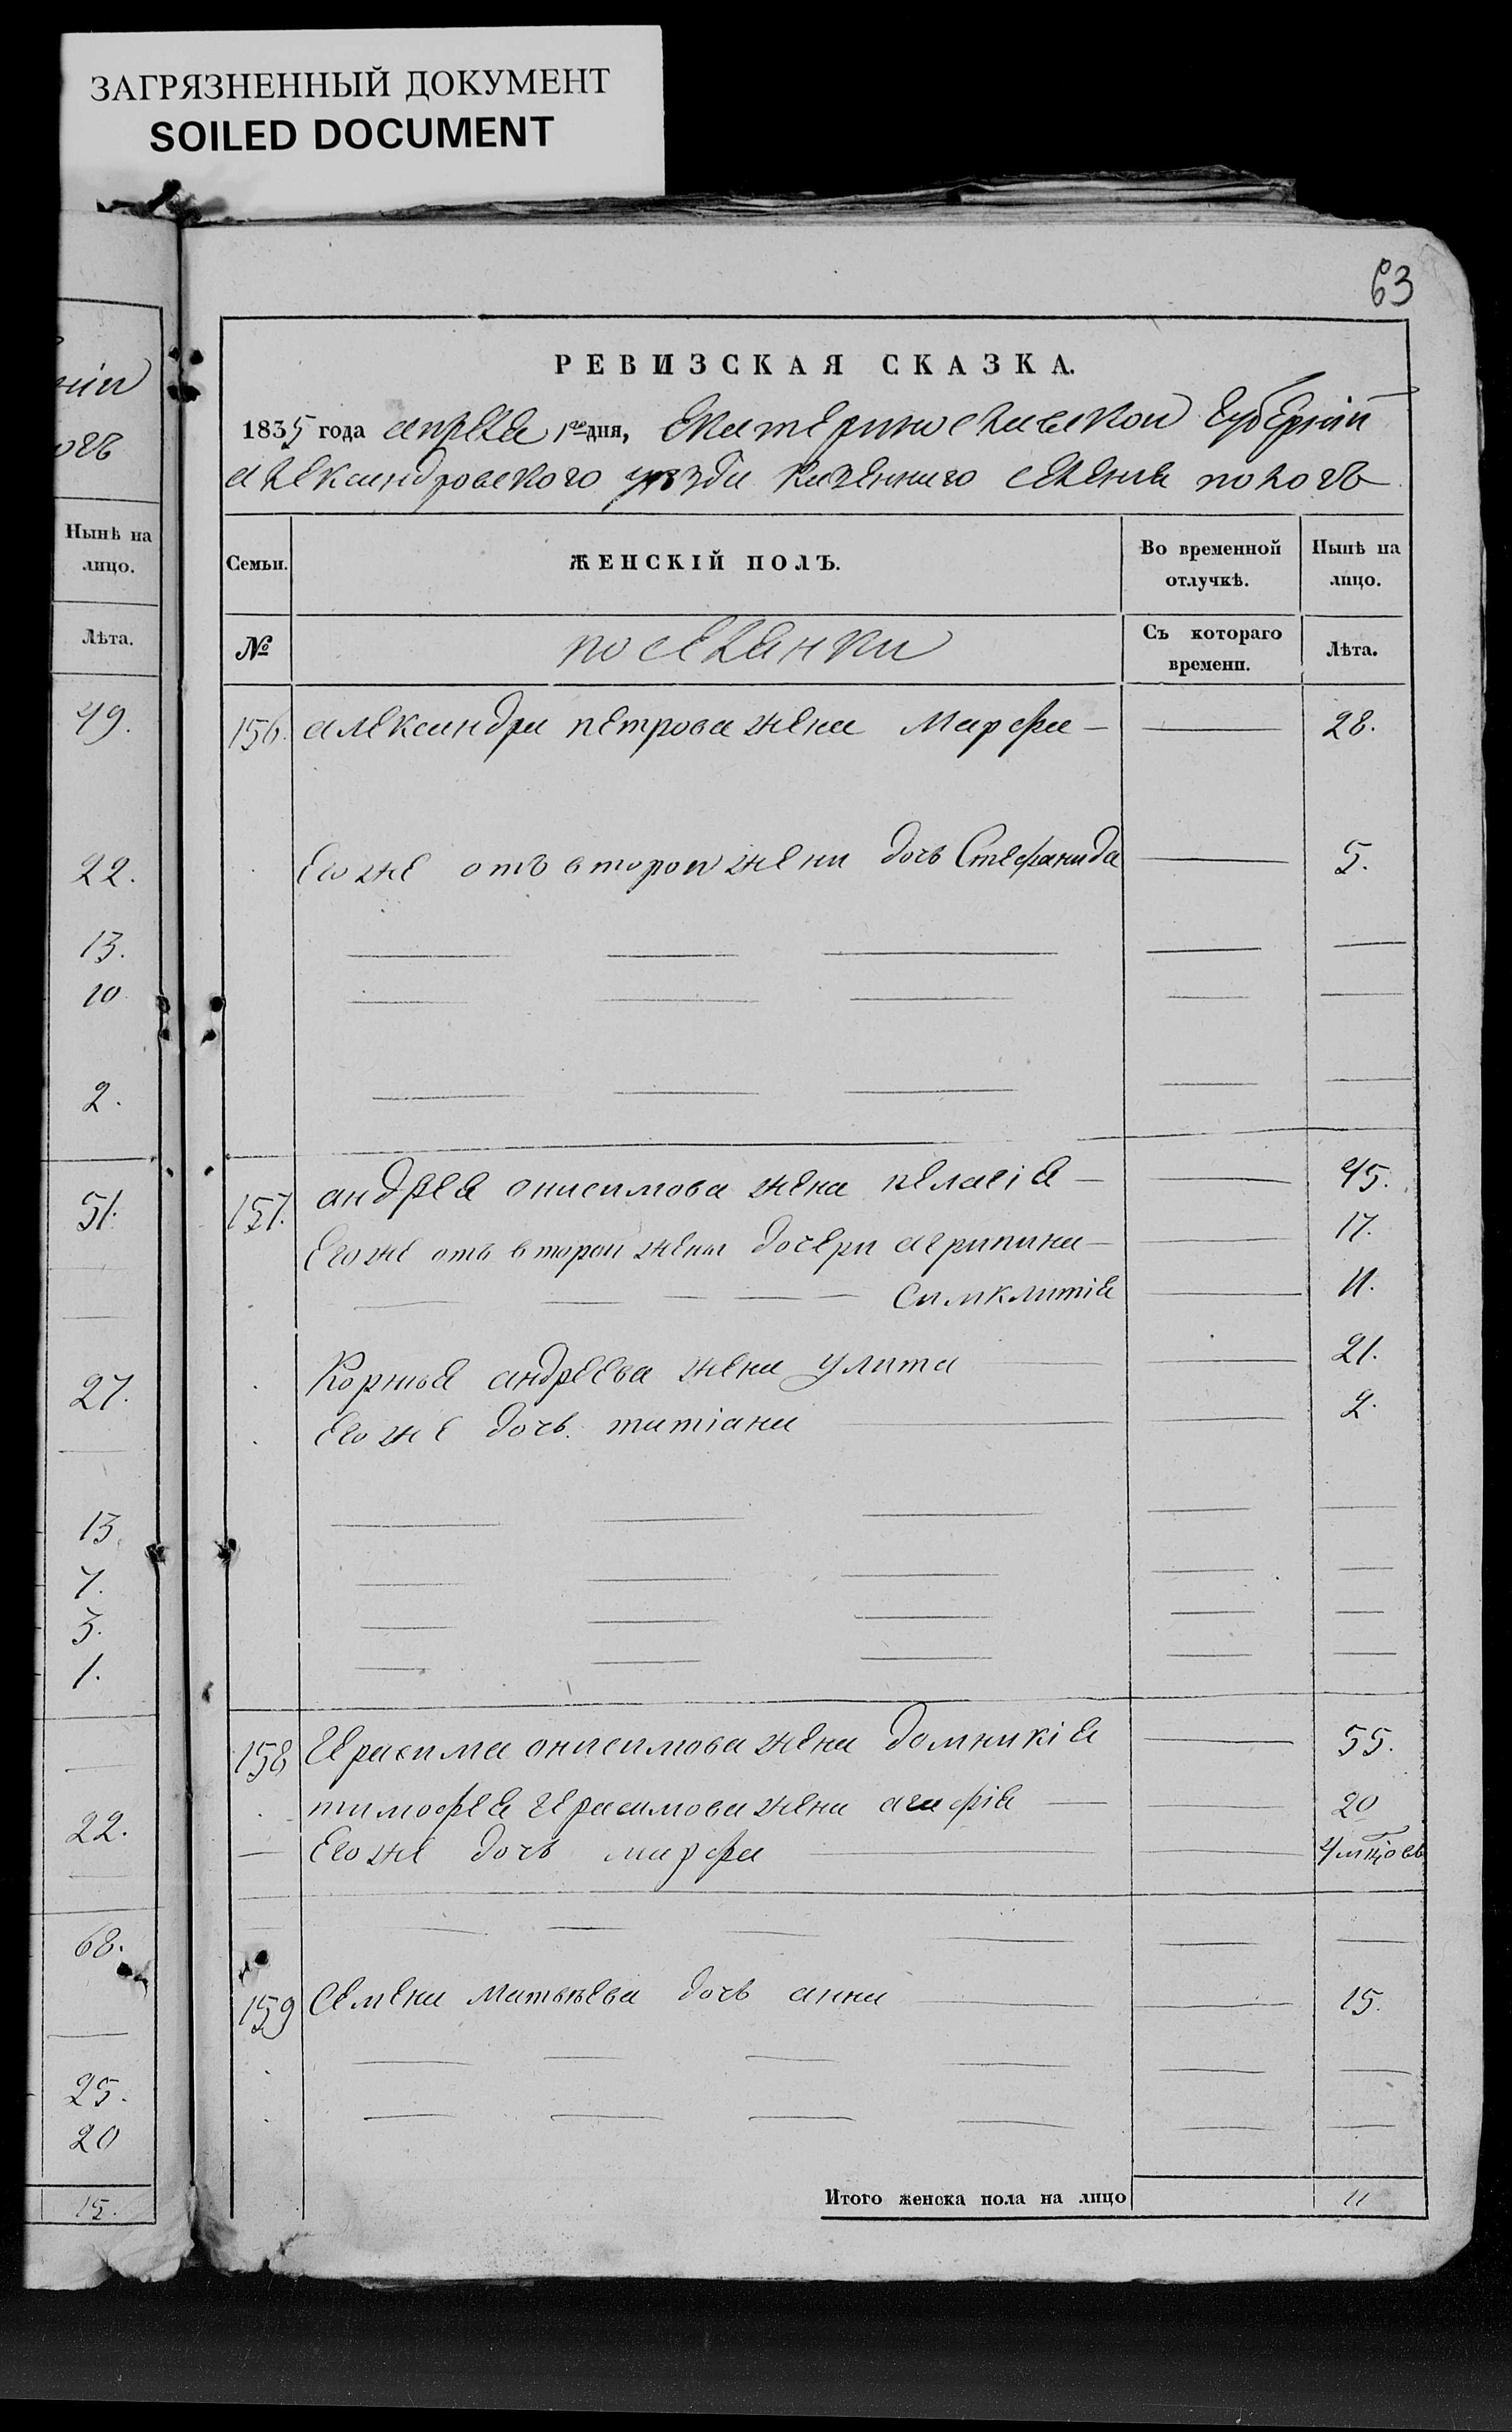 ЗАГРЯЗНЕННЫЙ ДОКУМЕНТ
SOILED DOCUMENT
63
нiи
Нынѣ на
лицо.
Лѣта.
49.
22.
13.
10
2.
51.
27.
13.
7.
3.
1.
22.
68.
25.
20
15.
РЕВИЗСКАЯ СКАЗКА.
1835 года апреля 1го дня, Екатеринославской Губернiи
александровского уезда казенного селения пологъ
Семьи. ЖЕНСКІЙ ПОЛЪ. Во временной отлучкѣ. Нынѣ на лицо.
№ поселянки Съ котораго времени. Лѣта.
156. александра петрова жена Марфа — — 28.
Его же отъ второй жени дочь Стефанида — 5.
157. андрея онисимова жена пелагiя — — 45.
Его же отъ второй жены дочери агрипина — — 17.
Симклитiя — 11.
Корнья андреева жена улита — — 21.
Его же дочь татiана — — 2.
158 Герасима онисимова жена домникiя — 55.
тимофея Герасимова жена агафiя — — 20
— Его же дочь марфа — — 4 мѣсяцовъ
159 Семена матвѣева дочь анна — — 15.
Итого женска пола на лицо 11